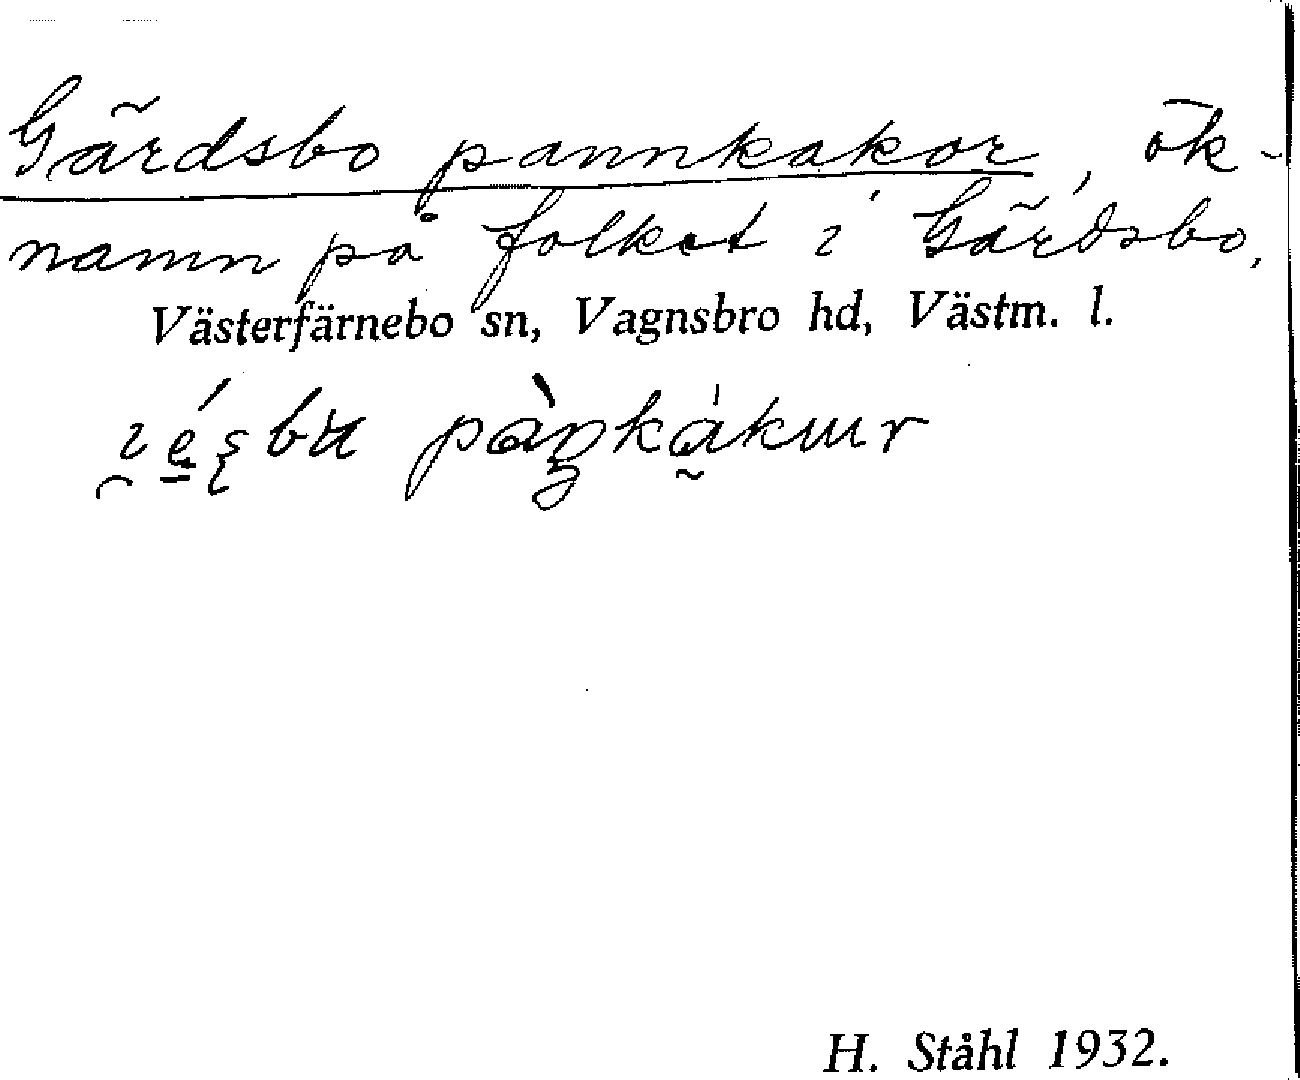 Gärdsbo pannkakor, ök-
namn på folket i Gärdsbo,
Västerfärnebo sn, Vagnsbro hd, Västm. l.
H. Ståhl 1932.